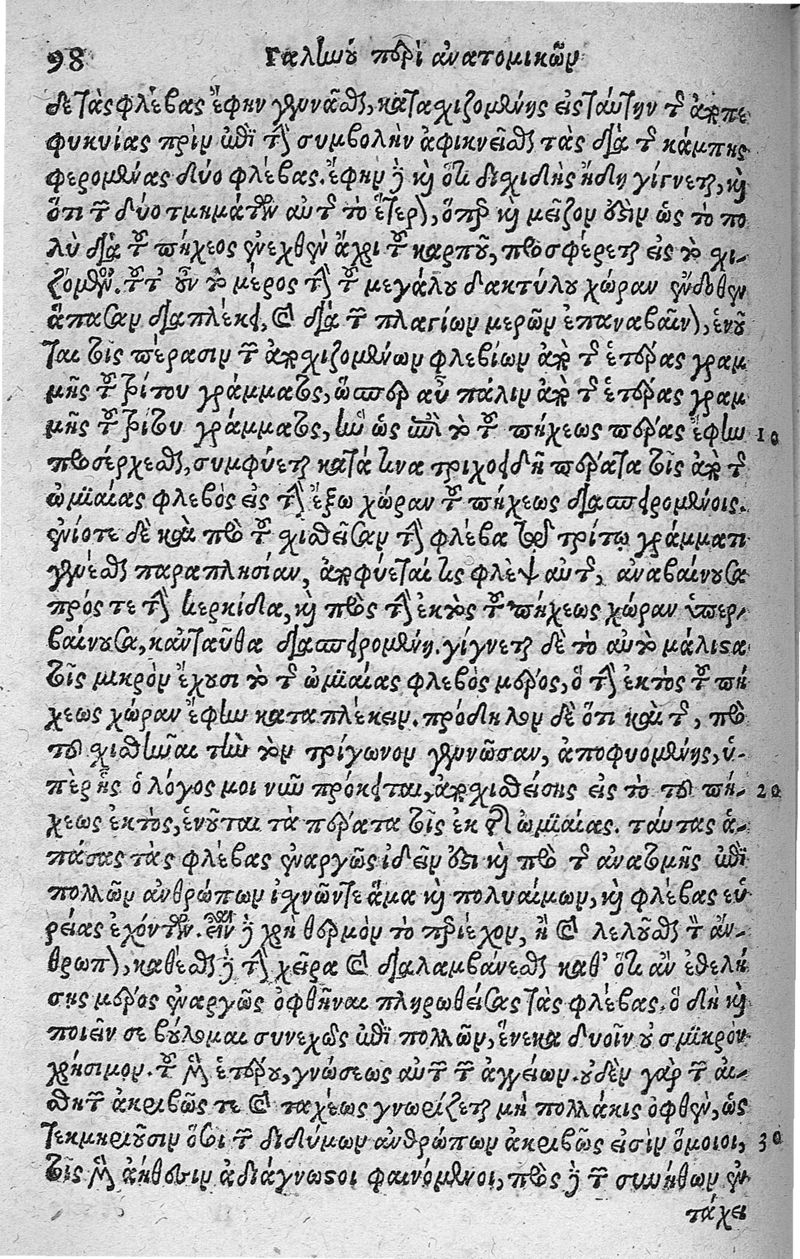 98 Γαληνοῦ περὶ ἀνατομικῶν
δε τὰς φλέβας ἔφην γενέσθαι, κατασχιζομένης εἰς ταύτην τῆς ἀποπε
φυκυίας πρὶν ἐπὶ τὴν συμβολὴν ἀφικνεῖσθαι τὰς διὰ τῆς κάμπης
φερομένας δύο φλέβας. ἔφην δὲ καὶ ὅτι δισχιδὴς ἤδη γίγνεται, καὶ
ὅτι τῶν δύο τμημάτων αὐτῆς τὸ ἕτερον, ὅπερ καὶ μεῖζόν ἐστιν ὡς τὸ πο
λὺ διὰ τοῦ πήχεος ἐνεχθὲν ἄχρι τοῦ καρποῦ, προσφέρεται εἰς τὸ σχι-
ζόμενον. τοῦτ' οὖν τὸ μέρος τὴν τοῦ μεγάλου δακτύλου χώραν ἔνδοθεν
ἅπασαν διαπλέκει, καὶ διὰ τῶν πλαγίων μερῶν ἐπαναβαῖνον, ἑνοῦ
ται τοῖς πέρασιν τῶν ἀποσχιζομένων φλεβίων ἀπὸ τῆς ἑτέρας γραμ
μῆς τοῦ τρίτου γράμματος, ὥσπερ αὖ πάλιν ἀπὸ τῆς ἑτέρας γραμ
μῆς τοῦ τρίτου γράμματος, ἣν ὡς ἐπὶ τὸ τοῦ πήχεως πέρας ἔφην 10
προσέρχεσθαι, συμφύεται κατά τινα τριχοειδῆ πέρατα τοῖς ἀπὸ τῆς
ὠμιαίας φλεβὸς εἰς τὴν ἔξω χώραν τοῦ πήχεως διασπειρομένοις.
ἐνίοτε δὲ καὶ πρὸ τοῦ σχισθεῖσαν τὴν φλέβα τῷ τρίτῳ γράμματι
γενέσθαι παραπλησίαν, ἀποφύεταί τις φλὲψ αὐτῆς, ἀναβαίνουσα
πρός τε τὴν κερκίδα, καὶ πρὸς τὴν ἐκτὸς τοῦ πήχεως χώραν ὑπερ-
βαίνουσα, κἀνταῦθα διασπειρομένη. γίγνεται δὲ τὸ αὐτὸ μάλιστα
τοῖς μικρὸν ἔχουσι τὸ τῆς ὠμιαίας φλεβὸς μέρος, ὃ τὴν ἐκτὸς τοῦ πή
χεως χώραν ἔφην καταπλέκειν. πρόδηλον δὲ ὅτι καὶ τῆς, πρὸ
τοῦ σχισθῆναι τὴν τὸν τρίγωνον γεννῶσαν, ἀποφυομένης, ὑ-
πὲρ ἧς ὁ λόγος μοι νῦν πρόκειται, ἀποσχισθείσης εἰς τὸ τοῦ πή- 20
χεως ἐκτὸς, ἑνοῦται τὰ πέρατα τοῖς ἐκ τῆς ὠμιαίας. ταύτας ἁ-
πάσας τὰς φλέβας ἐναργῶς ἰδεῖν ἔστι καὶ πρὸ τῆς ἀνατομῆς ἐπὶ
πολλῶν ἀνθρώπων ἰσχνῶν τε ἅμα καὶ πολυαίμων, καὶ φλέβας εὐ
ρείας ἐχόντων. εἶναι δὲ χρὴ θερμὸν τὸ περιέχον, ἢ καὶ λελοῦσθαι τὸν ἄν-
θρωπον, καθέσθαι δὲ τὴν χεῖρα καὶ διαλαμβάνεσθαι καθ' ὅτι ἂν ἐθελή
σῃς μέρος ἐναργῶς ὀφθῆναι πληρωθείσας τὰς φλέβας. ὃ δὴ καὶ
ποιεῖν σε βούλομαι συνεχῶς ἐπὶ πολλῶν, ἕνεκα δυοῖν οὐ σμικρὸν
χρήσιμον. τοῦ μὲν ἑτέρου, γνώσεως αὐτῶν τῶν ἀγγείων. οὐδὲν γὰρ τῶν αἰ-
σθητῶν ἀκριβῶς τε καὶ ταχέως γνωρίζεται μὴ πολλάκις ὀφθὲν, ὡς
τεκμηριοῦσιν ὅσοι τῶν διδύμων ἀνθρώπων ἀκριβῶς εἰσὶν ὅμοιοι, 30
τοῖς μὲν ἀήθεσιν ἀδιάγνωστοι φαινόμενοι, πρὸς δὲ τῶν συνήθων ἐν
τάχει